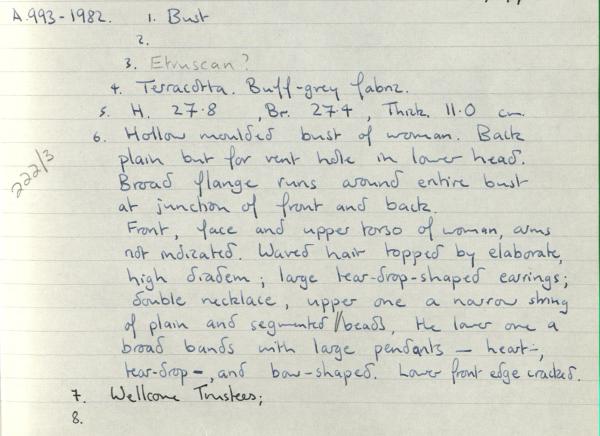 A.993-1982. 1. Bust
2.
3. Etruscan?
4. Terracotta. Buff-grey fabric.
5. H. 27.8, Br. 27.4, Thick. 11.0 cm.
222/3
6. Hollow moulded bust of woman. Back
plain but for vent hole in lower head.
Broad flange runs around entire bust
at junction of front and back.
Front, face and upper torso of woman, arms
not indicated. Waved hair topped by elaborate,
high diadem; large tear-drop-shaped earrings;
double necklace, upper one a narrow string
of plain and segmented beads, the lower one a
broad bands with large pendants – heart-,
tear-drop-, and bow-shaped. Lower front edge cracked.
7. Wellcome Trustees;
8.